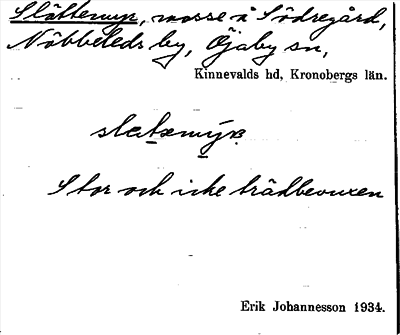 Slättemyr, mosse å Södregård,
Nöbbeleds by, Öjaby sn,
Kinnevalds hd, Kronobergs län.
Stor och icke trädbevuxen
Erik Johannesson 1934.